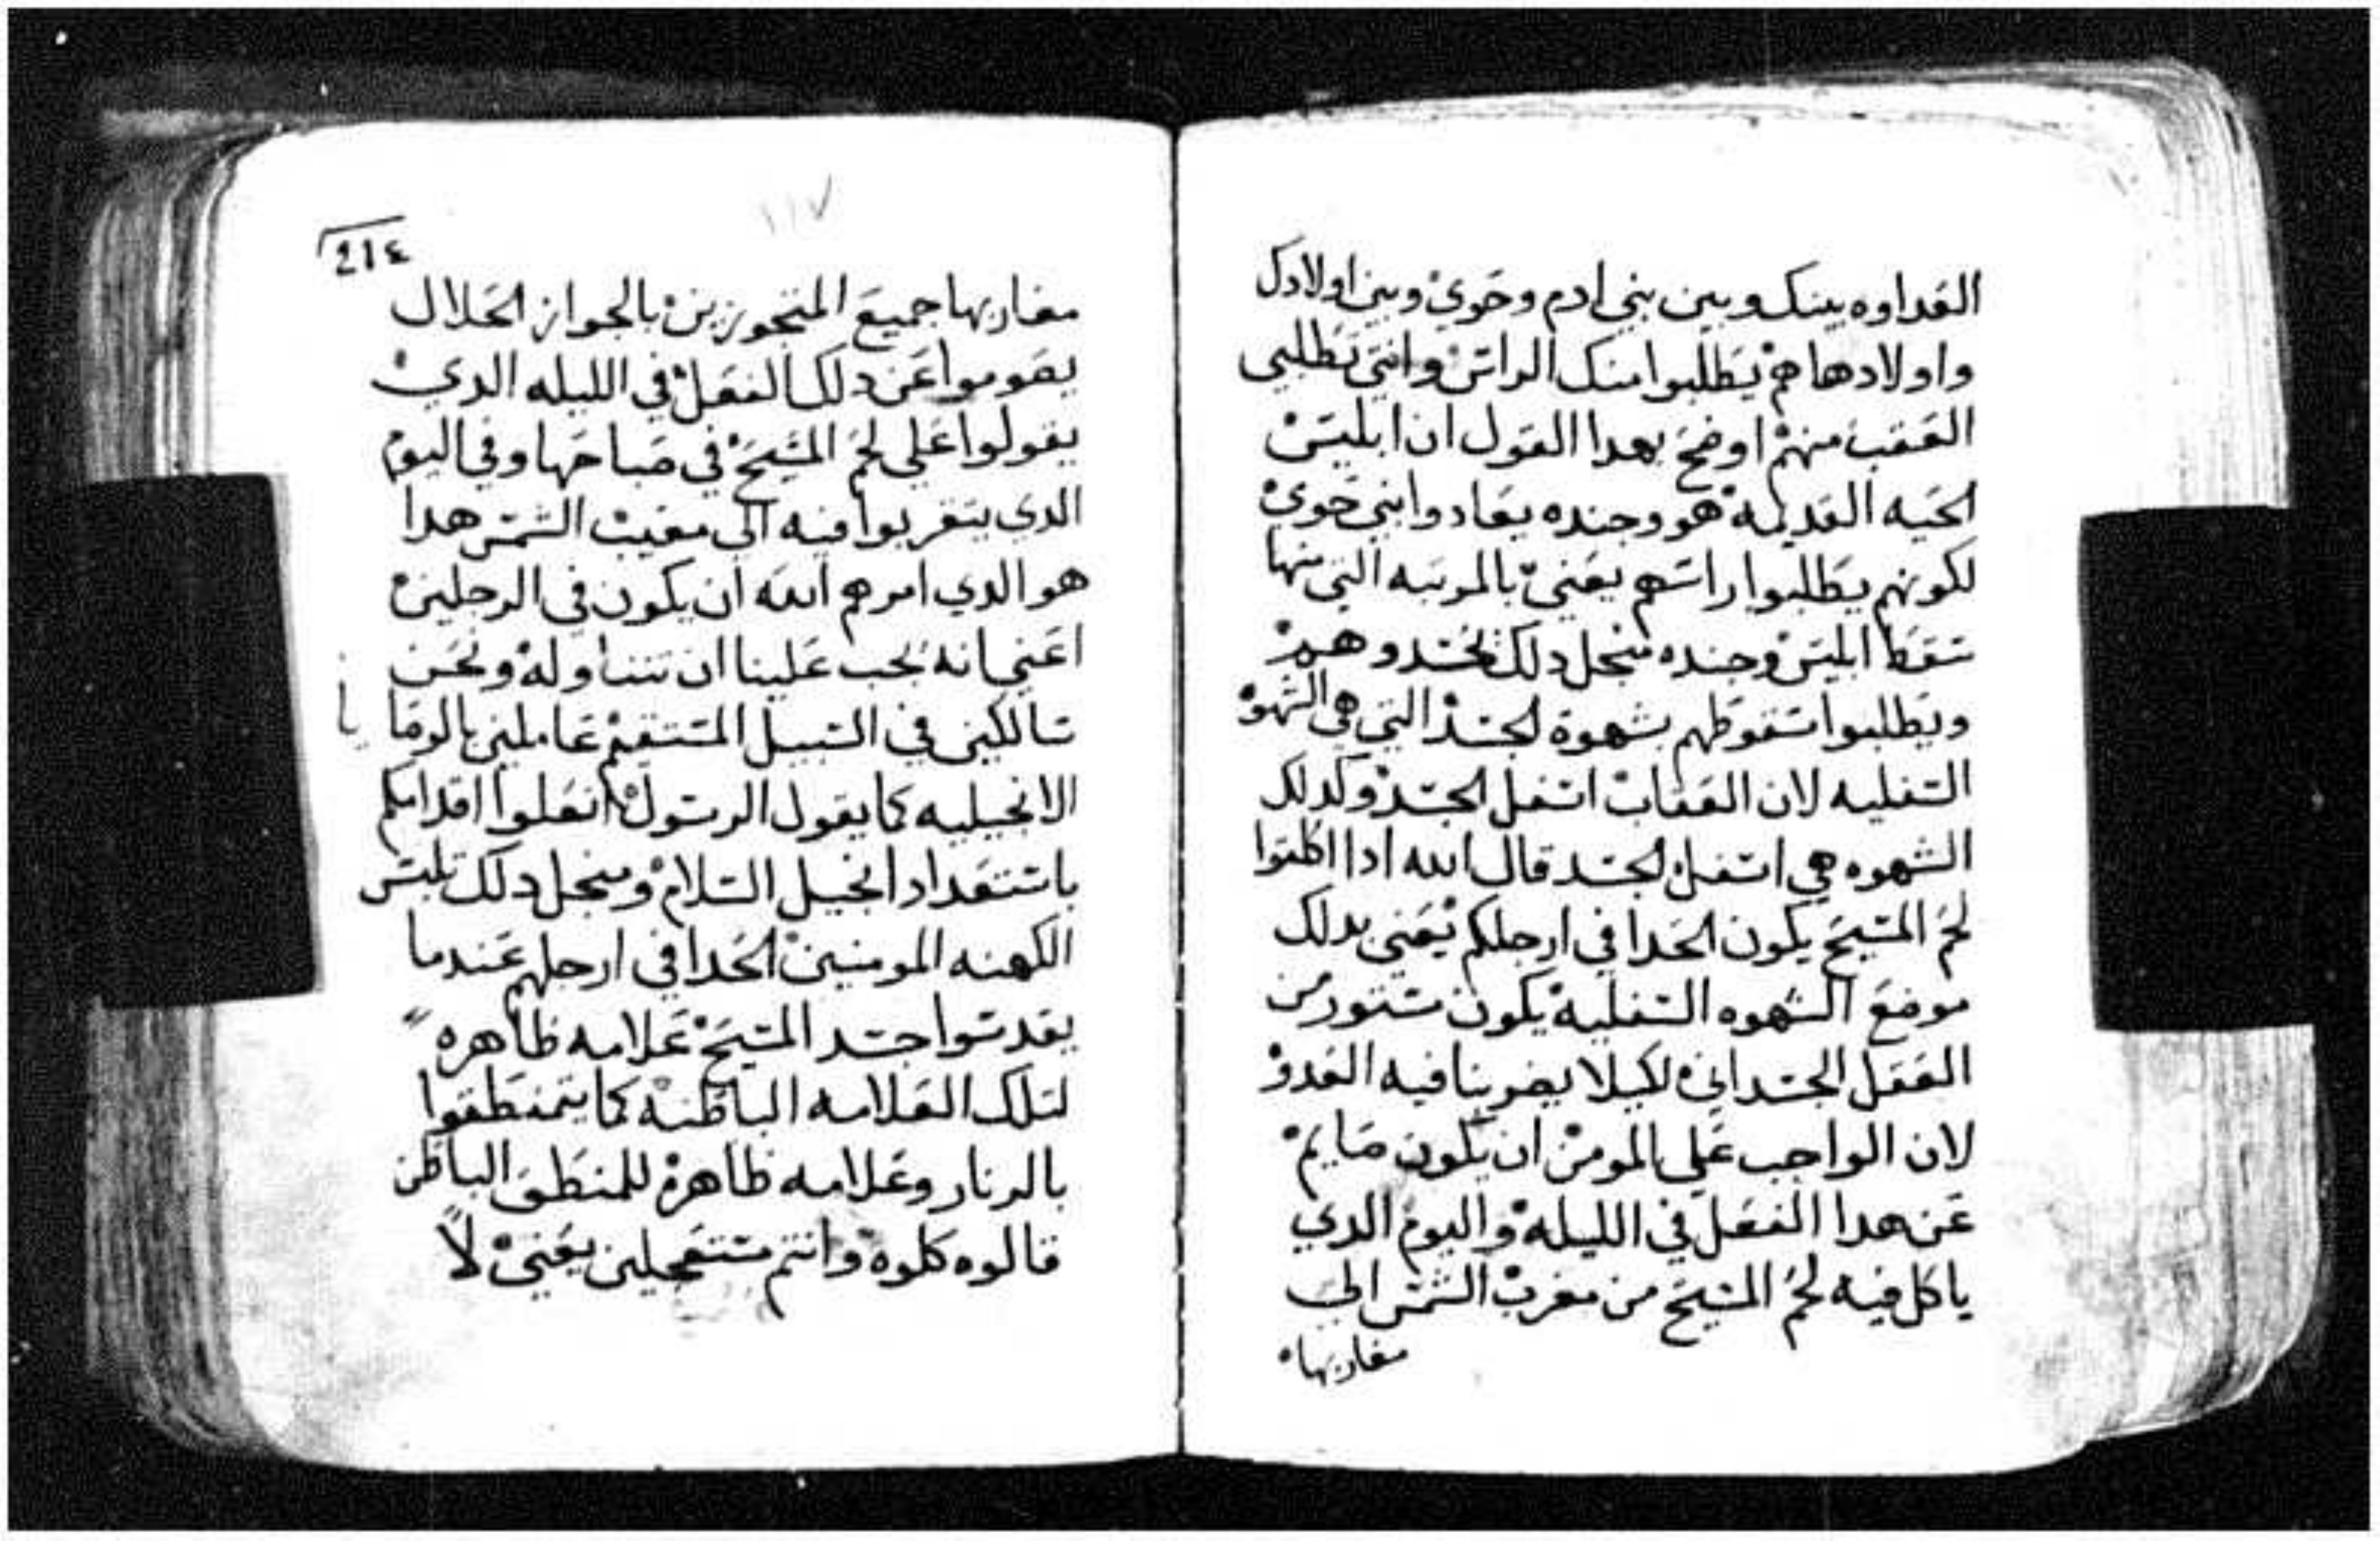 العداوه بينك وبين بني ادم وحوي وبين اولادك
واولادها هم يطلبوا منك الراس وانتي تطلبي
العقب منهم اوضح بهدا القول ان ابليس
الحيه القديمه هو وجنده يعادوا بني حوي
لكونهم يطلبوا راسهم يعني بالمرتبه التي منها
سقط ابليس وجنده منجل دلك تحسدوهم
ويطلبوا سقوطهم بشهوة الجسد التي هي الشهوة
السفليه لان العقاب اسفل الجسد وكدلك
الشهوه هي اسفل الجسد قال الله ادا اكلتوا
لحم المسيح يكون الحدا في ارجلكم يعني بدلك
موضع الشهوه السفلية يكون مستور من
الفعل الجسداني لكيلا يضربنا فيه العدو
لان الواجب علي المومن ان يكون صايم
عن هدا الفعل في الليله واليوم الدي
ياكل فيه لحم المسيح من مغرب الشمس الي
مغاربها
١١٧
214
مغاربها جميع المتجوزين بالجواز الحلال
يصوموا عن دلك الفعل في الليله الدي
يقولوا علي لحم المسيح في صباحها وفي اليوم
الدي يتقربوا فيه الي مغيب الشمس هدا
هو الدي امرهم الله ان يكون في الرجلين
اعني انه يجب علينا ان نتناوله ونحن
سالكين في السبيل المستقيم عاملين بالوصايا
الانجيليه كما يقول الرسول انعلوا اقدامكم
باستعداد انجيل السلام ومنجل دلك تلبس
الكهنه المومنين الحدا في ارجلهم عندما
يقدسوا جسد المسيح علامه ظاهره
لتلك العلامه الباطنه كما يتمنطقوا
بالزنار وعلامه ظاهرة للمنطق الباطن
قالوه كلوه وانتم مستعجلين يعني لا